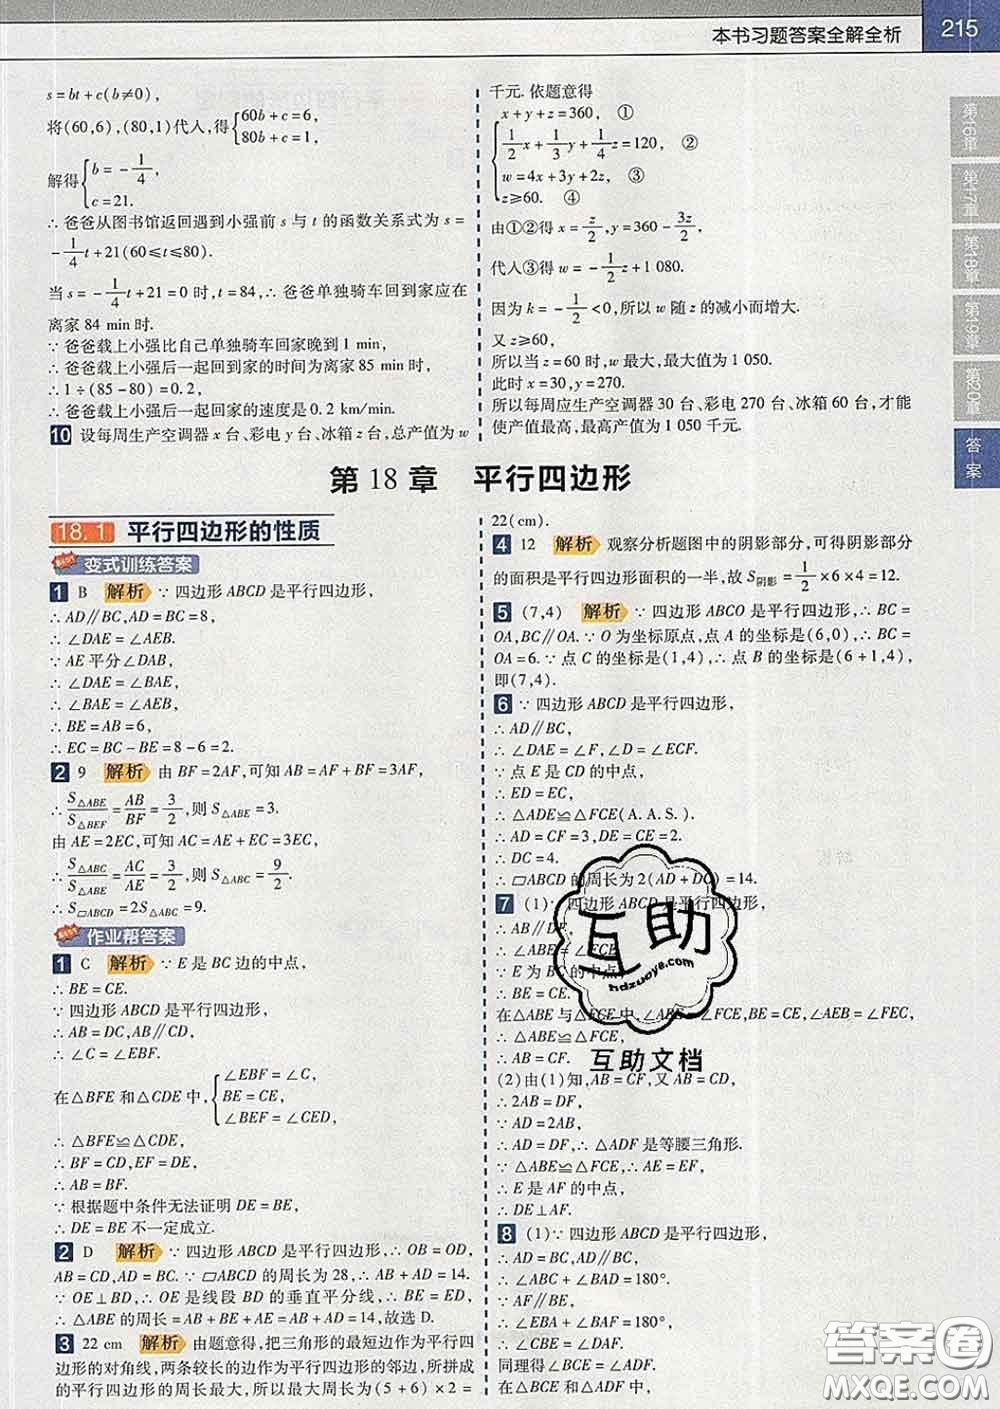 本书习题答案全解全析
215
s=bt+c(b≠0),
将(60,6),(80,1)代人,得{60b+c=6,
80b+c=1,
解得{b=-1/4,
c=21.
∴爸爸从图书馆返回遇到小强前 s 与 t 的函数关系式为 s=
-1/4t+21(60≤t≤80).
当 s=-1/4t+21=0 时,t=84,∴爸爸单独骑车回到家应在
离家 84 min 时.
∵爸爸载上小强比自己单独骑车回家晚到 1 min,
∴爸爸载上小强后一起回到家的时间为离家 85 min 时.
∴1÷(85-80)=0.2,
∴爸爸载上小强后一起回家的速度是 0.2 km/min.
10 设每周生产空调器 x 台、彩电 y 台、冰箱 z 台,总产值为 w
千元. 依题意得
x+y+z=360, ①
1/2x+1/3y+1/4z=120, ②
w=4x+3y+2z, ③
z≥60. ④
由①②得 x=z/2,y=360-3z/2,
代人③得 w=-1/2z+1 080.
因为 k=-1/2<0,所以 w 随 z 的减小而增大.
又 z≥60,
所以当 z=60 时,w 最大,最大产值为 1 050.
此时 x=30,y=270.
所以每周应生产空调器 30 台、彩电 270 台、冰箱 60 台,才能
使产值最高,最高产值为 1 050 千元.
第16章
第17章
第18章
第19章
第20章
答案
第 18 章 平行四边形
18.1 平行四边形的性质
变式训练答案
1 B 解析 ∵四边形 ABCD 是平行四边形,
∴AD∥BC,AD=BC=8,
∴∠DAE=∠AEB.
∵AE 平分∠DAB,
∴∠DAE=∠BAE,
∴∠BAE=∠AEB,
∴BE=AB=6,
∴EC=BC-BE=8-6=2.
2 9 解析 由 BF=2AF,可知 AB=AF+BF=3AF,
∴S△ABE/S△BEF=AB/BF=3/2,则 S△ABE=3.
由 AE=2EC,可知 AC=AE+EC=3EC,
∴S△ABC/S△ABE=AC/AE=3/2,则 S△ABC=9/2.
∴S▱ABCD=2S△ABC=9.
作业帮答案
1 C 解析 ∵E 是 BC 边的中点,
∴BE=CE.
∵四边形 ABCD 是平行四边形,
∴AB=DC,AB∥CD,
∴∠C=∠EBF.
在△BFE 和△CDE 中,{∠EBF=∠C,
BE=CE,
∠BEF=∠CED,
∴△BFE≌△CDE,
∴BF=CD,EF=DE,
∴AB=BF.
∵根据题中条件无法证明 DE=BE,
∴DE=BE 不一定成立.
2 D 解析 ∵四边形 ABCD 是平行四边形,∴OB=OD,
AB=CD,AD=BC.∵▱ABCD 的周长为 28,∴AB+AD=14.
∵OE⊥BD,∴OE 是线段 BD 的垂直平分线,∴BE=DE,
∴△ABE 的周长=AB+BE+AE=AB+AD=14,故选 D.
3 22 cm 解析 由题意得,把三角形的最短边作为平行四
边形的对角线,两条较长的边作为平行四边形的邻边,所拼成
的平行四边形的周长最大,所以最大周长为(5+6)×2=
22(cm).
4 12 解析 观察分析题图中的阴影部分,可得阴影部分
的面积是平行四边形面积的一半,故 S阴影=1/2×6×4=12.
5 (7,4) 解析 ∵四边形 ABCO 是平行四边形,∴BC=
OA,BC∥OA.∵O 为坐标原点,点 A 的坐标是(6,0),∴BC=
OA=6.∵点 C 的坐标是(1,4),∴点 B 的坐标是(6+1,4),
即(7,4).
6 ∵四边形 ABCD 是平行四边形,
∴AD∥BC,
∴∠DAE=∠F,∠D=∠ECF.
∵点 E 是 CD 的中点,
∴ED=EC,
∴△ADE≌△FCE(A.A.S.).
∴AD=CF=3,DE=CE=2.
∴DC=4.
∴▱ABCD 的周长为 2(AD+DC)=14.
7 (1)∵四边形 ABCD 是平行四边形,
∴AB∥DF,
∴∠ABE=∠FCE.
∵E 为 BC 的中点,
∴BE=CE.
在△ABE 与△FCE 中,∠ABE=∠FCE,BE=CE,∠AEB=∠FEC,
∴△ABE≌△FCE,
∴AB=CF.
(2)由(1)知,AB=CF,又 AB=CD,
∴2AB=DF,
∵AD=2AB,
∴AD=DF,∴△ADF 是等腰三角形.
∵△ABE≌△FCE,∴AE=EF,
∴E 是 AF 的中点,
∴DE⊥AF.
8 (1)∵四边形 ABCD 是平行四边形,
∴AD=BC,AD∥BC,
∴∠ABC+∠BAD=180°.
∵AF∥BE,
∴∠EBA+∠BAF=180°,
∴∠CBE=∠DAF.
同理得∠BCE=∠ADF.
互助
hdzuoye8.com
互助文档
答案圈
MXQE.COM